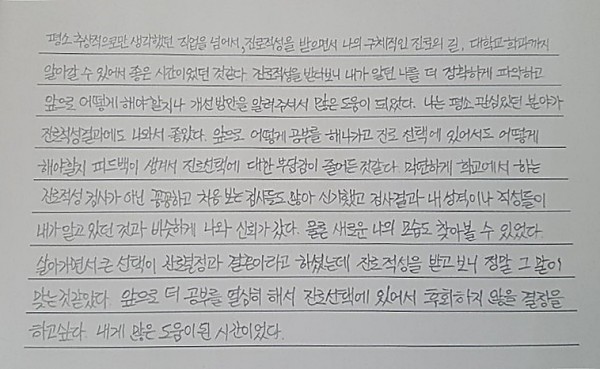 평소 추상적으로만 생각했던 직업을 넘어서, 진로적성을 받으면서 나의 구체적인 진로의 길, 대학교 학과까지
알아갈 수 있어서 좋은 시간이었던 것같다. 진로적성을 받다보니 내가 알던 나를 더 정확하게 파악하고
앞으로 어떻게 해야 할지나 개선방안을 알려주셔서 많은 도움이 되었다. 나는 평소 관심있던 분야가
진로적성결과에도 나와서 좋았다. 앞으로 어떻게 공부를 해나가고 진로 선택에 있어서도 어떻게
해야할지 피드백이 생겨서 진로선택에 대한 부담감이 줄어든 것같다. 막연하게 학교에서 하는
진로적성 검사가 아닌 꼼꼼하고 처음 보는 검사들도 많아 신기했고 검사결과 내 성격이나 적성들이
내가 알고 있던 것과 비슷하게 나와 신뢰가 갔다. 물론 새로운 나의 모습도 찾아볼 수 있었다.
살아가면서 큰 선택이 진로결정과 결혼이라고 하셨는데 진로적성을 받고 보니 정말 그 말이
맞는 것같았다. 앞으로 더 공부를 열심히 해서 진로선택에 있어서 후회하지 않을 결정을
하고싶다. 내게 많은 도움이 된 시간이었다.